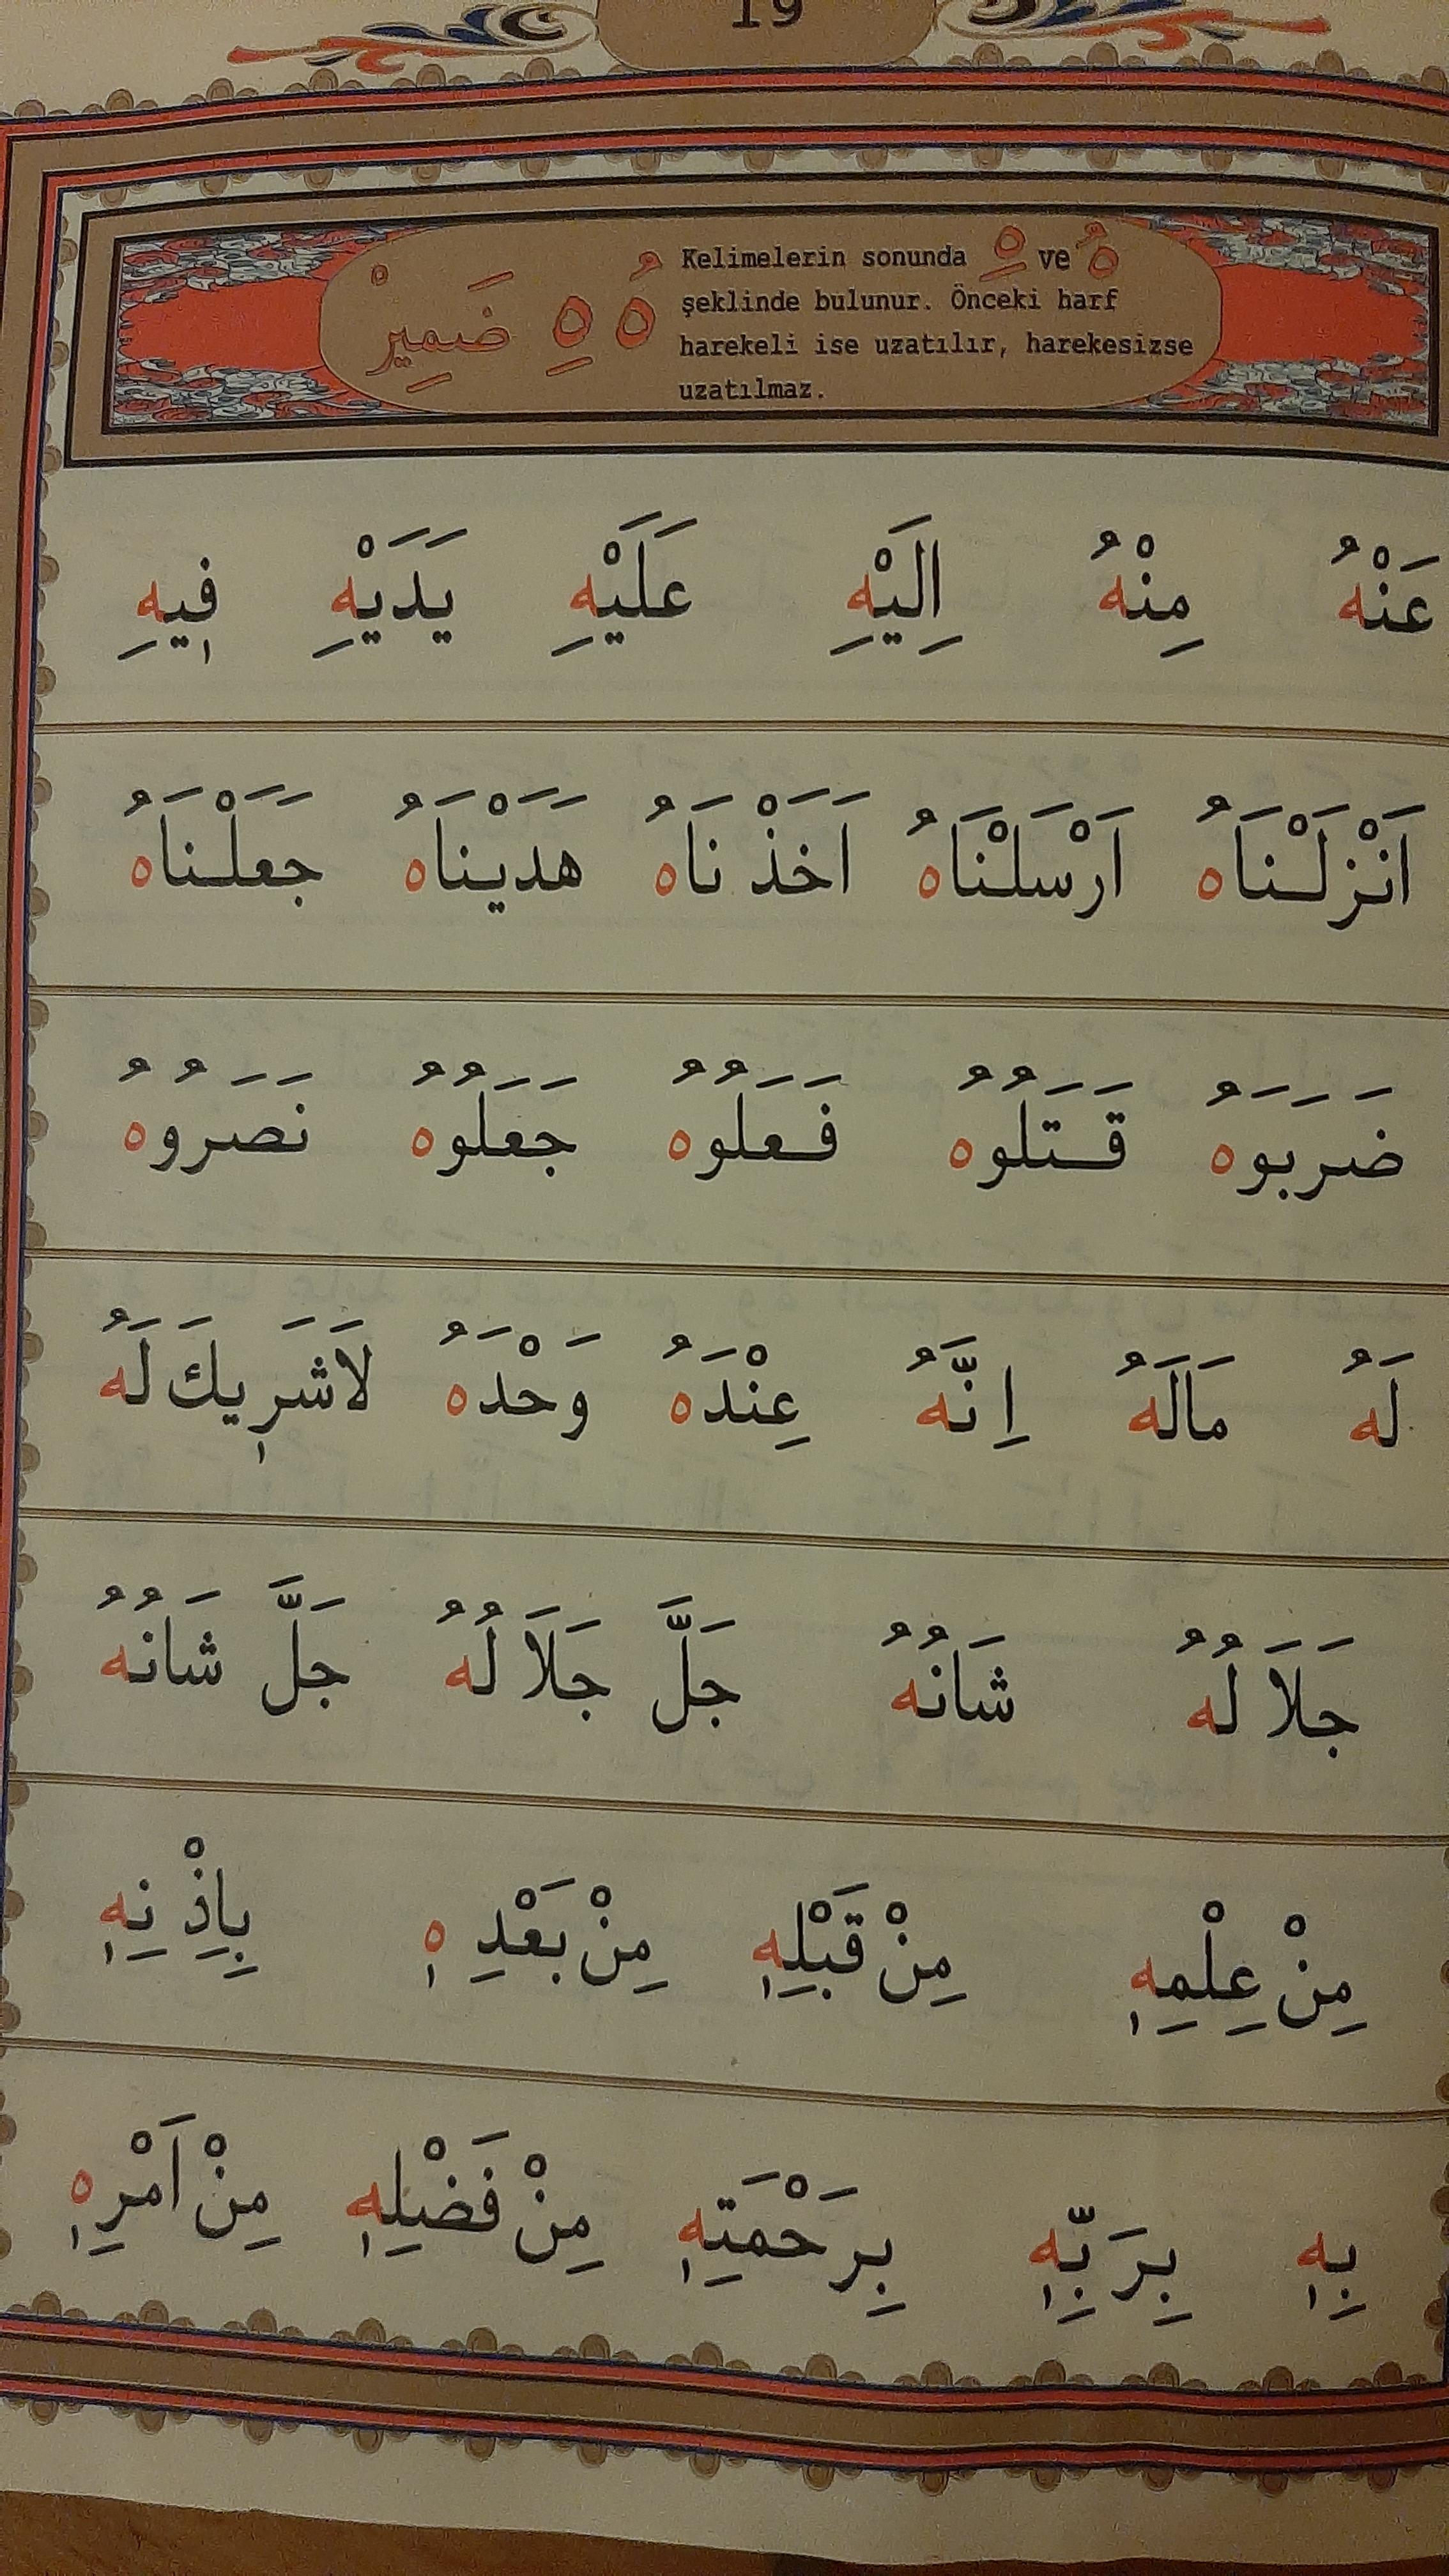 19
ضَمِيرْ هِ هُ
Kelimelerin sonunda هِ ve هُ
şeklinde bulunur. Önceki harf
harekeli ise uzatılır, harekesizse
uzatılmaz.
عَنْهُ مِنْهُ اِلَيْهِ عَلَيْهِ يَدَيْهِ فٖيهِ
اَنْزَلْنَاهُ اَرْسَلْنَاهُ اَخَذْنَاهُ هَدَيْنَاهُ جَعَلْنَاهُ
ضَرَبَوُهُ قَتَلُوهُ فَعَلُوهُ جَعَلُوهُ نَصَرُوهُ
لَهُ مَالَهُ اِنَّهُ عِنْدَهُ وَحْدَهُ لَاشَرٖيكَ لَهُ
جَلَالُهُ شَانُهُ جَلَّ جَلَالُهُ جَلَّ شَانُهُ
مِنْ عِلْمِهٖ مِنْ قَبْلِهٖ مِنْ بَعْدِهٖ بِاِذْنِهٖ
بِهٖ بِرَبِّهٖ بِرَحْمَتِهٖ مِنْ فَضْلِهٖ مِنْ اَمْرِهٖ